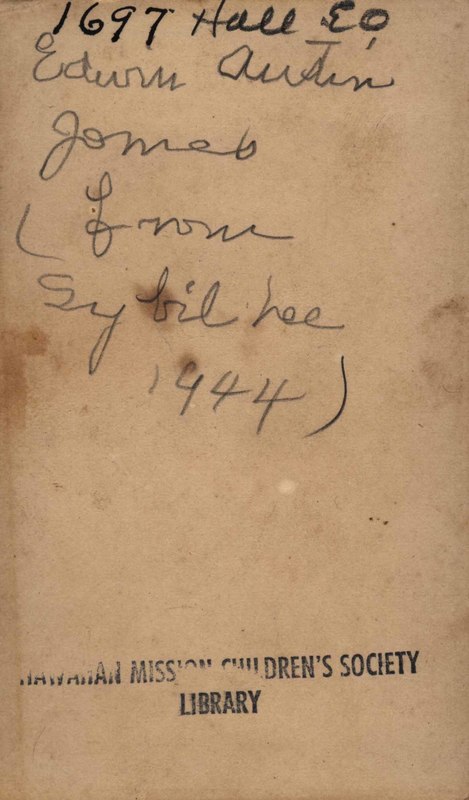 1697 Hall EO
Edwin Austin
Jones
(from
Sybil Lee
1944)
HAWAIIAN MISSION CHILDREN'S SOCIETY
LIBRARY